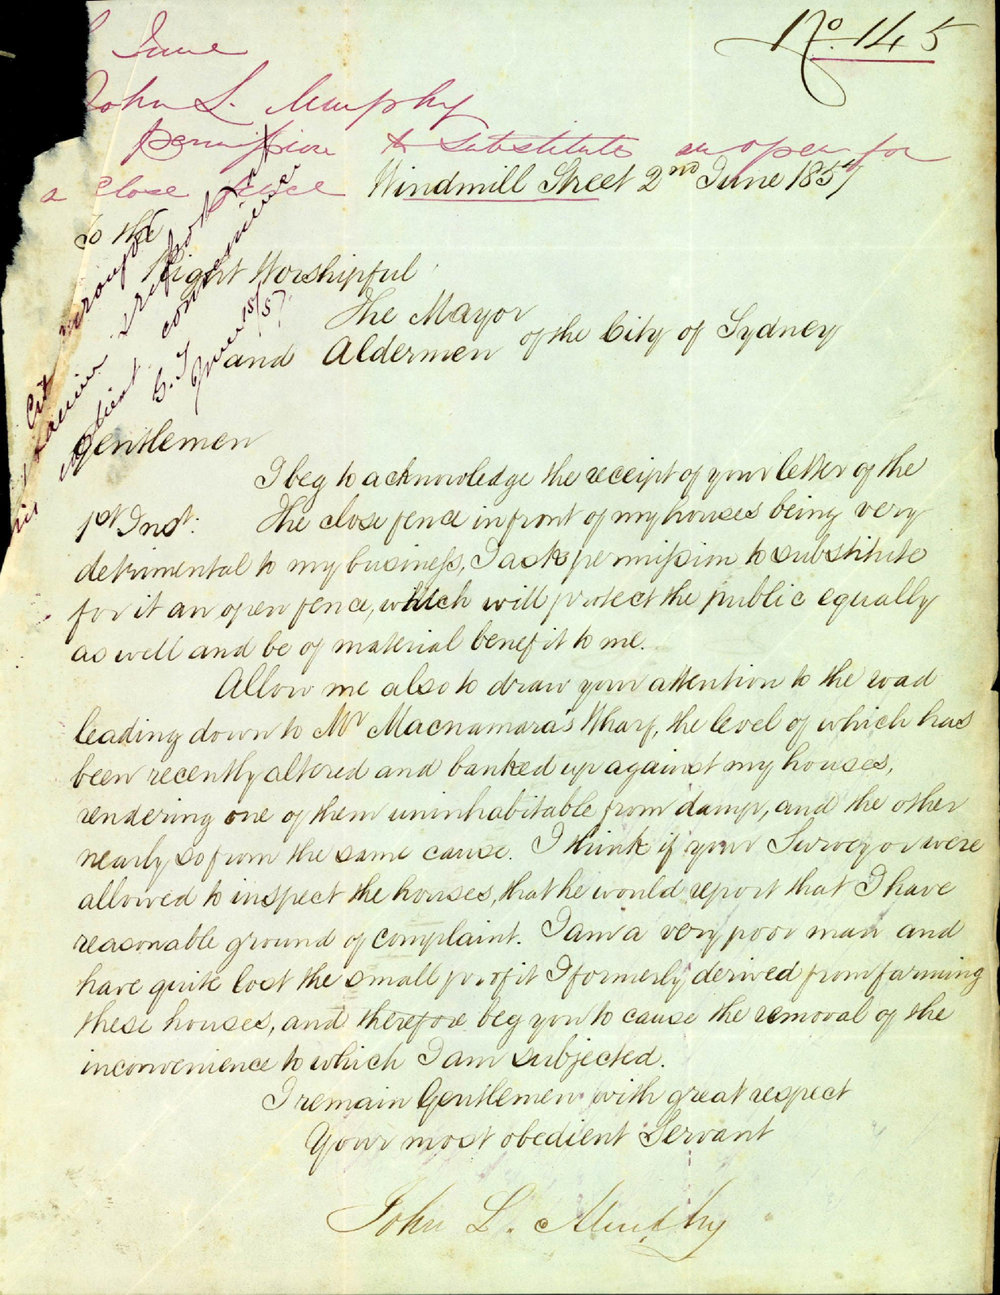 No. 145
June
John L. Murphy
permission to substitute an open for
a close fence
Windmill Street 2nd June 1857
To the
Right Worshipful
The Mayor
and Aldermen of the City of Sydney
City
examine & report
convenience
G. T
June 15/57.
Gentlemen
I beg to acknowledge the receipt of your letter of the
1st Inst. The close fence in front of my houses being very
detrimental to my business, I ask permission to substitute
for it an open fence, which will protect the public equally
as well and be of material benefit to me.
Allow me also to draw your attention to the road
leading down to Mr Macnamara's Wharf, the level of which has
been recently altered and banked up against my houses,
rendering one of them uninhabitable from damp, and the other
nearly so from the same cause. I think if your Surveyor were
allowed to inspect the houses, that he would report that I have
reasonable ground of complaint. I am a very poor man and
have quite lost the small profit I formerly derived from farming
these houses, and therefore beg you to cause the removal of the
inconvenience to which I am subjected.
I remain Gentlemen with great respect
Your most obedient Servant
John L. Murphy